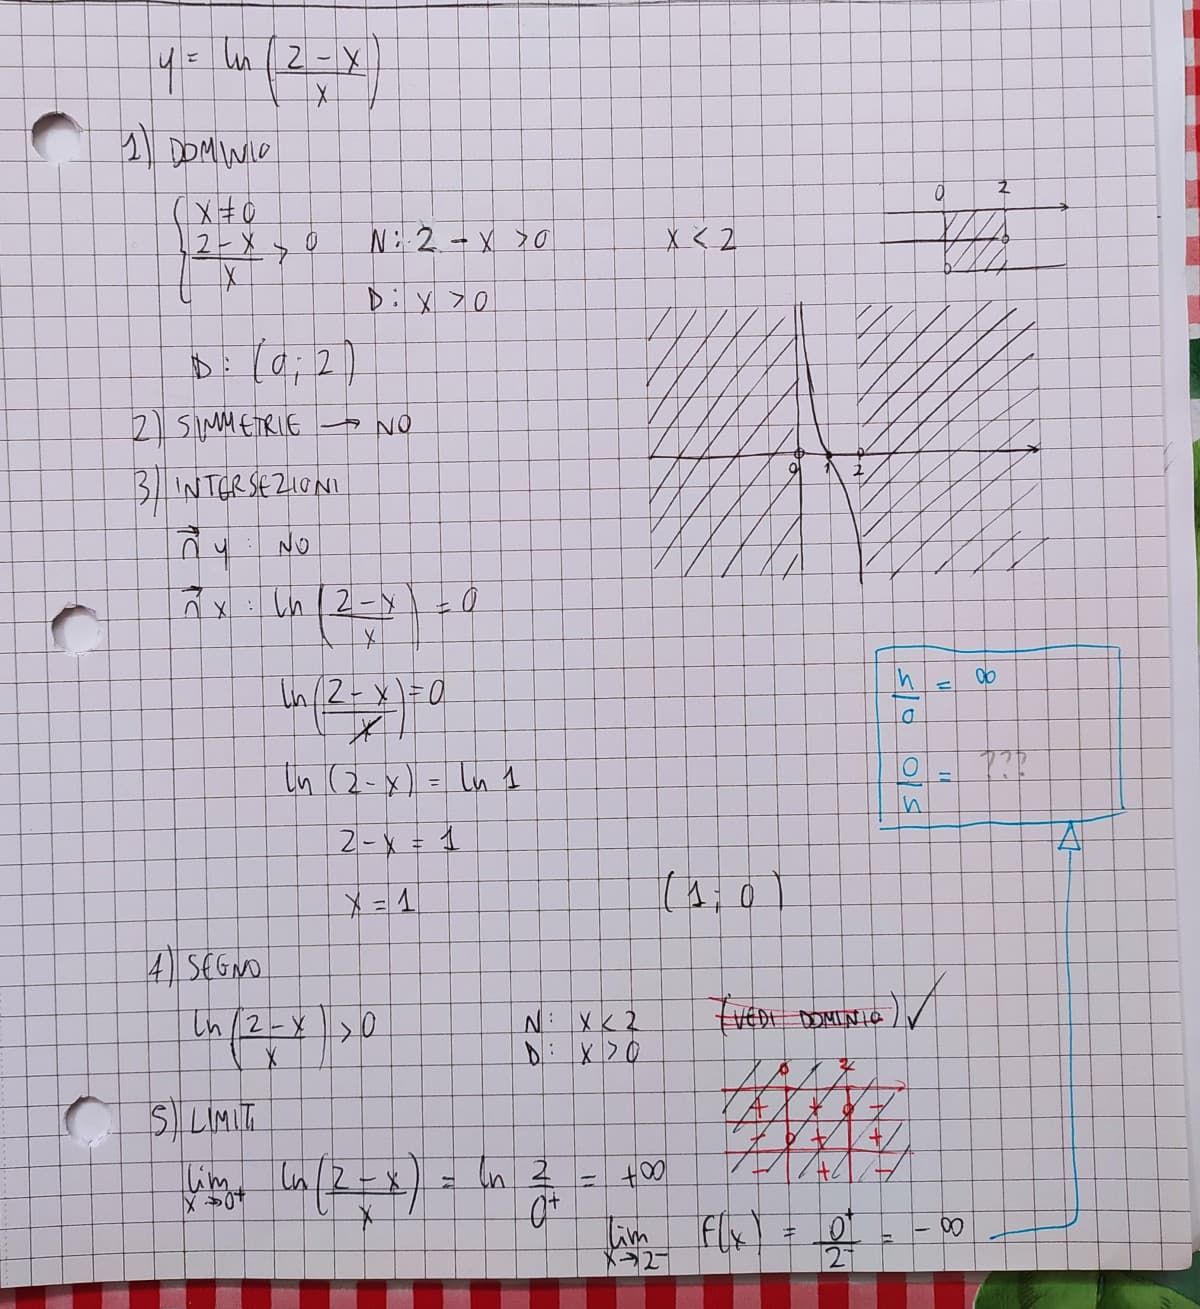 y = ln (2 - x / x)
1) DOMINIO
{ x ≠ 0
2 - x / x > 0   N: 2 - x > 0   x < 2
D: x > 0
0 2
D: (0; 2)
2) SIMMETRIE → NO
3) INTERSEZIONI
0 1 2
∩ y : NO
∩ x : ln (2 - x / x) = 0
ln (2 - x / x) = 0
ln (2 - x) = ln 1
2 - x = 1
x = 1   (1; 0)
n / 0 = ∞
0 / n = ???
4) SEGNO
ln (2 - x / x) > 0   N: x < 2   (VEDI DOMINIO) ✓
D: x > 0
0 2
+ + -
- + +
- + -
5) LIMITI
lim x→0+ ln (2 - x / x) = ln 2 / 0+ = +∞
lim x→2- f(x) = 0+ / 2- = -∞